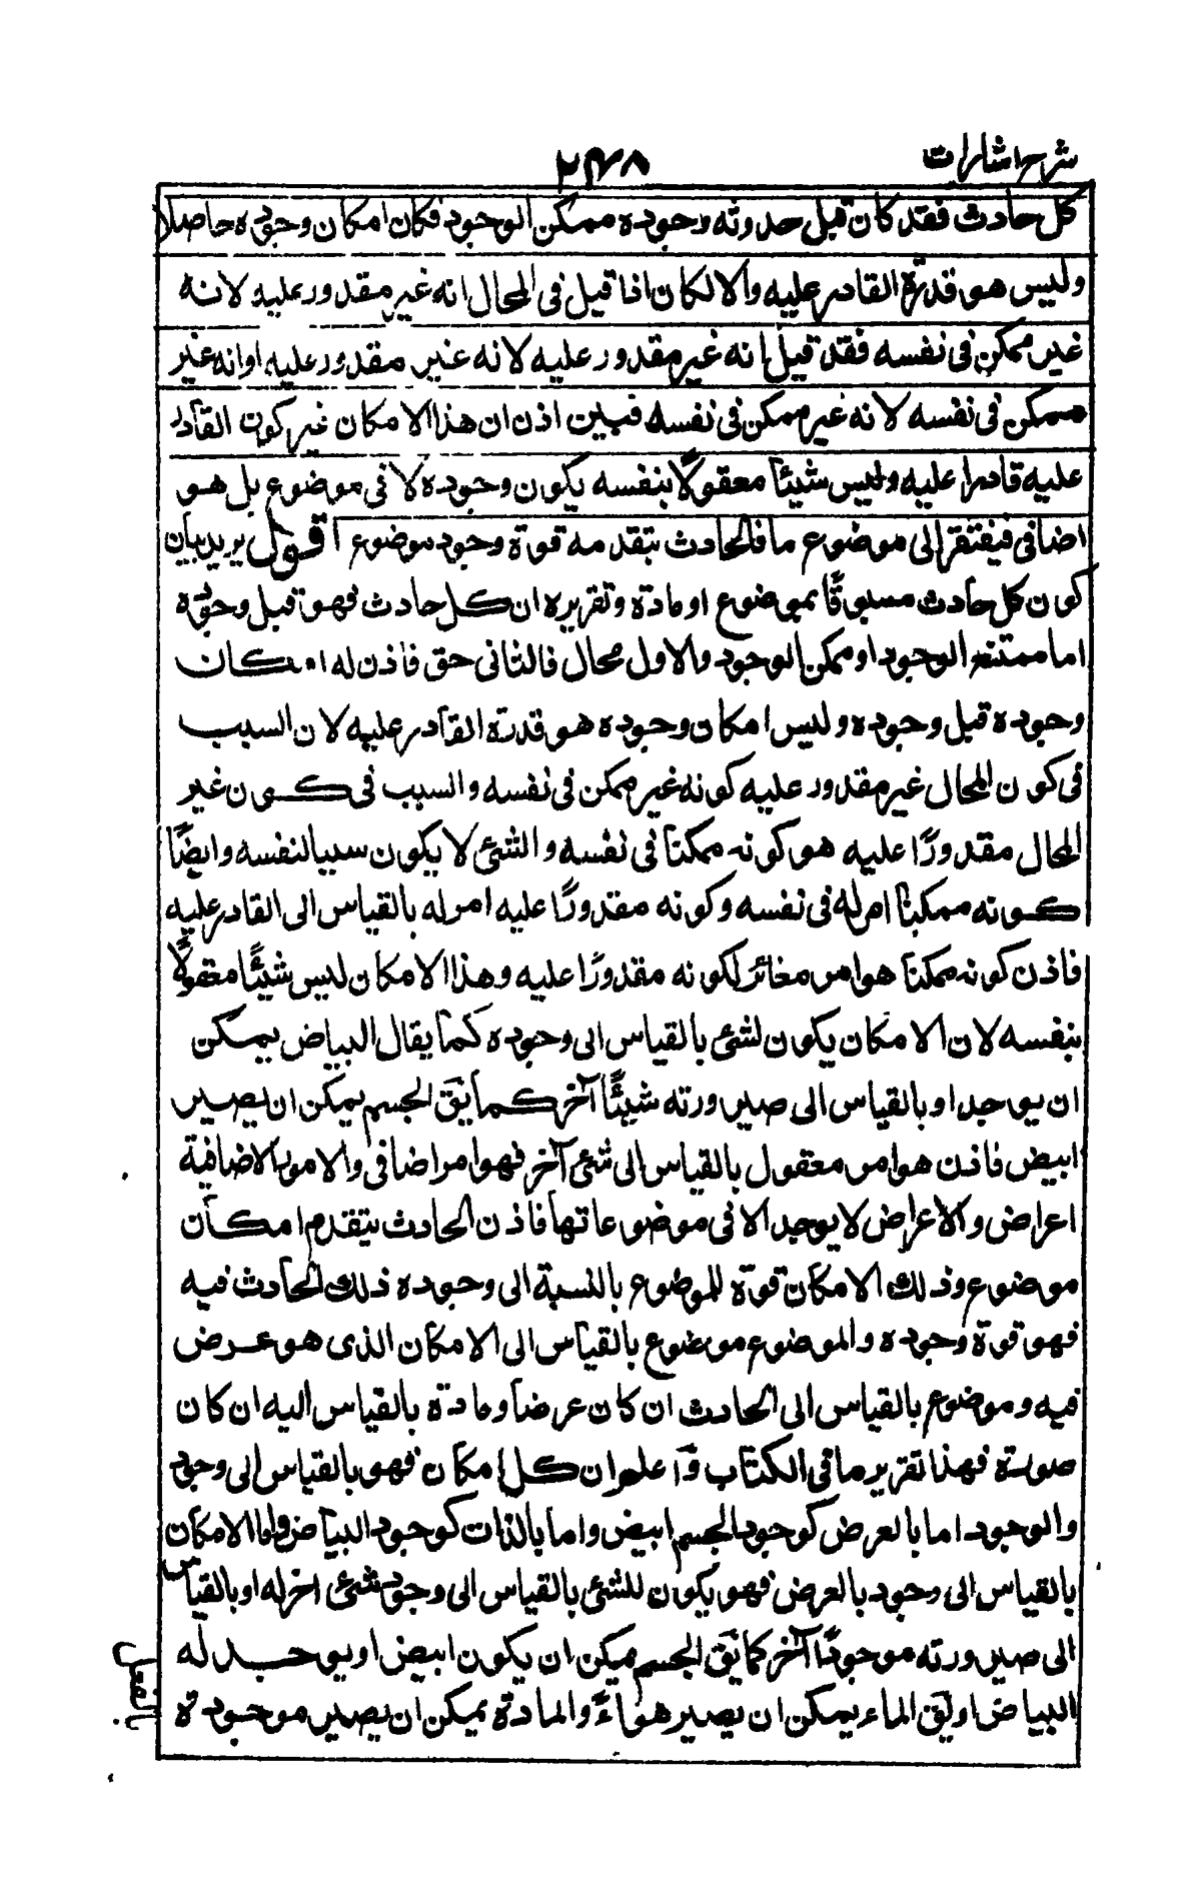 شرح اشارات
۲۴۸
كل حادث فقد كان قبل حدوثه وجوده ممكن الوجود فكان امكان وجوده حاصلا
وليس هو قدرة القادر عليه والا لكان اذا قيل فى المحال انه غير مقدور عليه لانه
غير ممكن فى نفسه فقد قيل انه غير مقدور عليه لانه غير مقدور عليه او انه غير
ممكن فى نفسه لانه غير ممكن فى نفسه فبين اذن ان هذا الامكان غير كون القادر
عليه قادرا عليه وليس شيئا معقولًا بنفسه يكون وجوده لا فى موضوع بل هو
اضافى فيفتقر الى موضوع ما فالحادث يتقدمه قوة وجود موضوع اقول يريد بيان
كون كل حادث مسبوقًا بموضوع او مادة وتقريره ان كل حادث فهو قبل وجوده
اما ممتنع الوجود او ممكن الوجود والاول محال فالثانى حق فاذن له امكان
وجوده قبل وجوده وليس امكان وجوده هو قدرة القادر عليه لان السبب
فى كون المحال غير مقدور عليه كونه غير ممكن فى نفسه والسبب فى كون غير
المحال مقدورًا عليه هو كونه ممكنا فى نفسه والشئ لا يكون سببا لنفسه وايضًا
كونه ممكنا امر له فى نفسه وكونه مقدورًا عليه امر له بالقياس الى القادر عليه
فاذن كونه ممكنا هو امر مغائر لكونه مقدورًا عليه وهذا الامكان ليس شيئًا معقولًا
بنفسه لان الامكان يكون لشئ بالقياس الى وجوده كما يقال البياض يمكن
ان يوجد او بالقياس الى صيرورته شيئًا آخر كما يق الجسم يمكن ان يصير
ابيض فاذن هو امر معقول بالقياس الى شئ آخر فهو امر اضافى والامور الاضافية
اعراض والاعراض لا يوجد الا فى موضوعاتها فاذن الحادث يتقدم امكان
موضوع وذلك الامكان قوة للموضوع بالنسبة الى وجوده ذلك الحادث فيه
فهو قوة وجوده والموضوع موضوع بالقياس الى الامكان الذى هو عرض
فيه وموضوع بالقياس الى الحادث ان كان عرضا ومادة بالقياس اليه ان كان
صورة فهذا تقرير ما فى الكتاب واعلم ان كل امكان فهو بالقياس الى وجود
والوجود اما بالعرض كوجود الجسم ابيض واما بالذات كوجود البياض واما الامكان
بالقياس الى وجود بالعرض فهو يكون للشئ بالقياس الى وجود شئ اخر له او بالقياس
الى صيرورته موجودًا آخر كما يق الجسم يمكن ان يكون ابيض او يوجد له
البياض او يق الماء يمكن ان يصير هواءً والمادة يمكن ان يصير موجودة
بالفعل